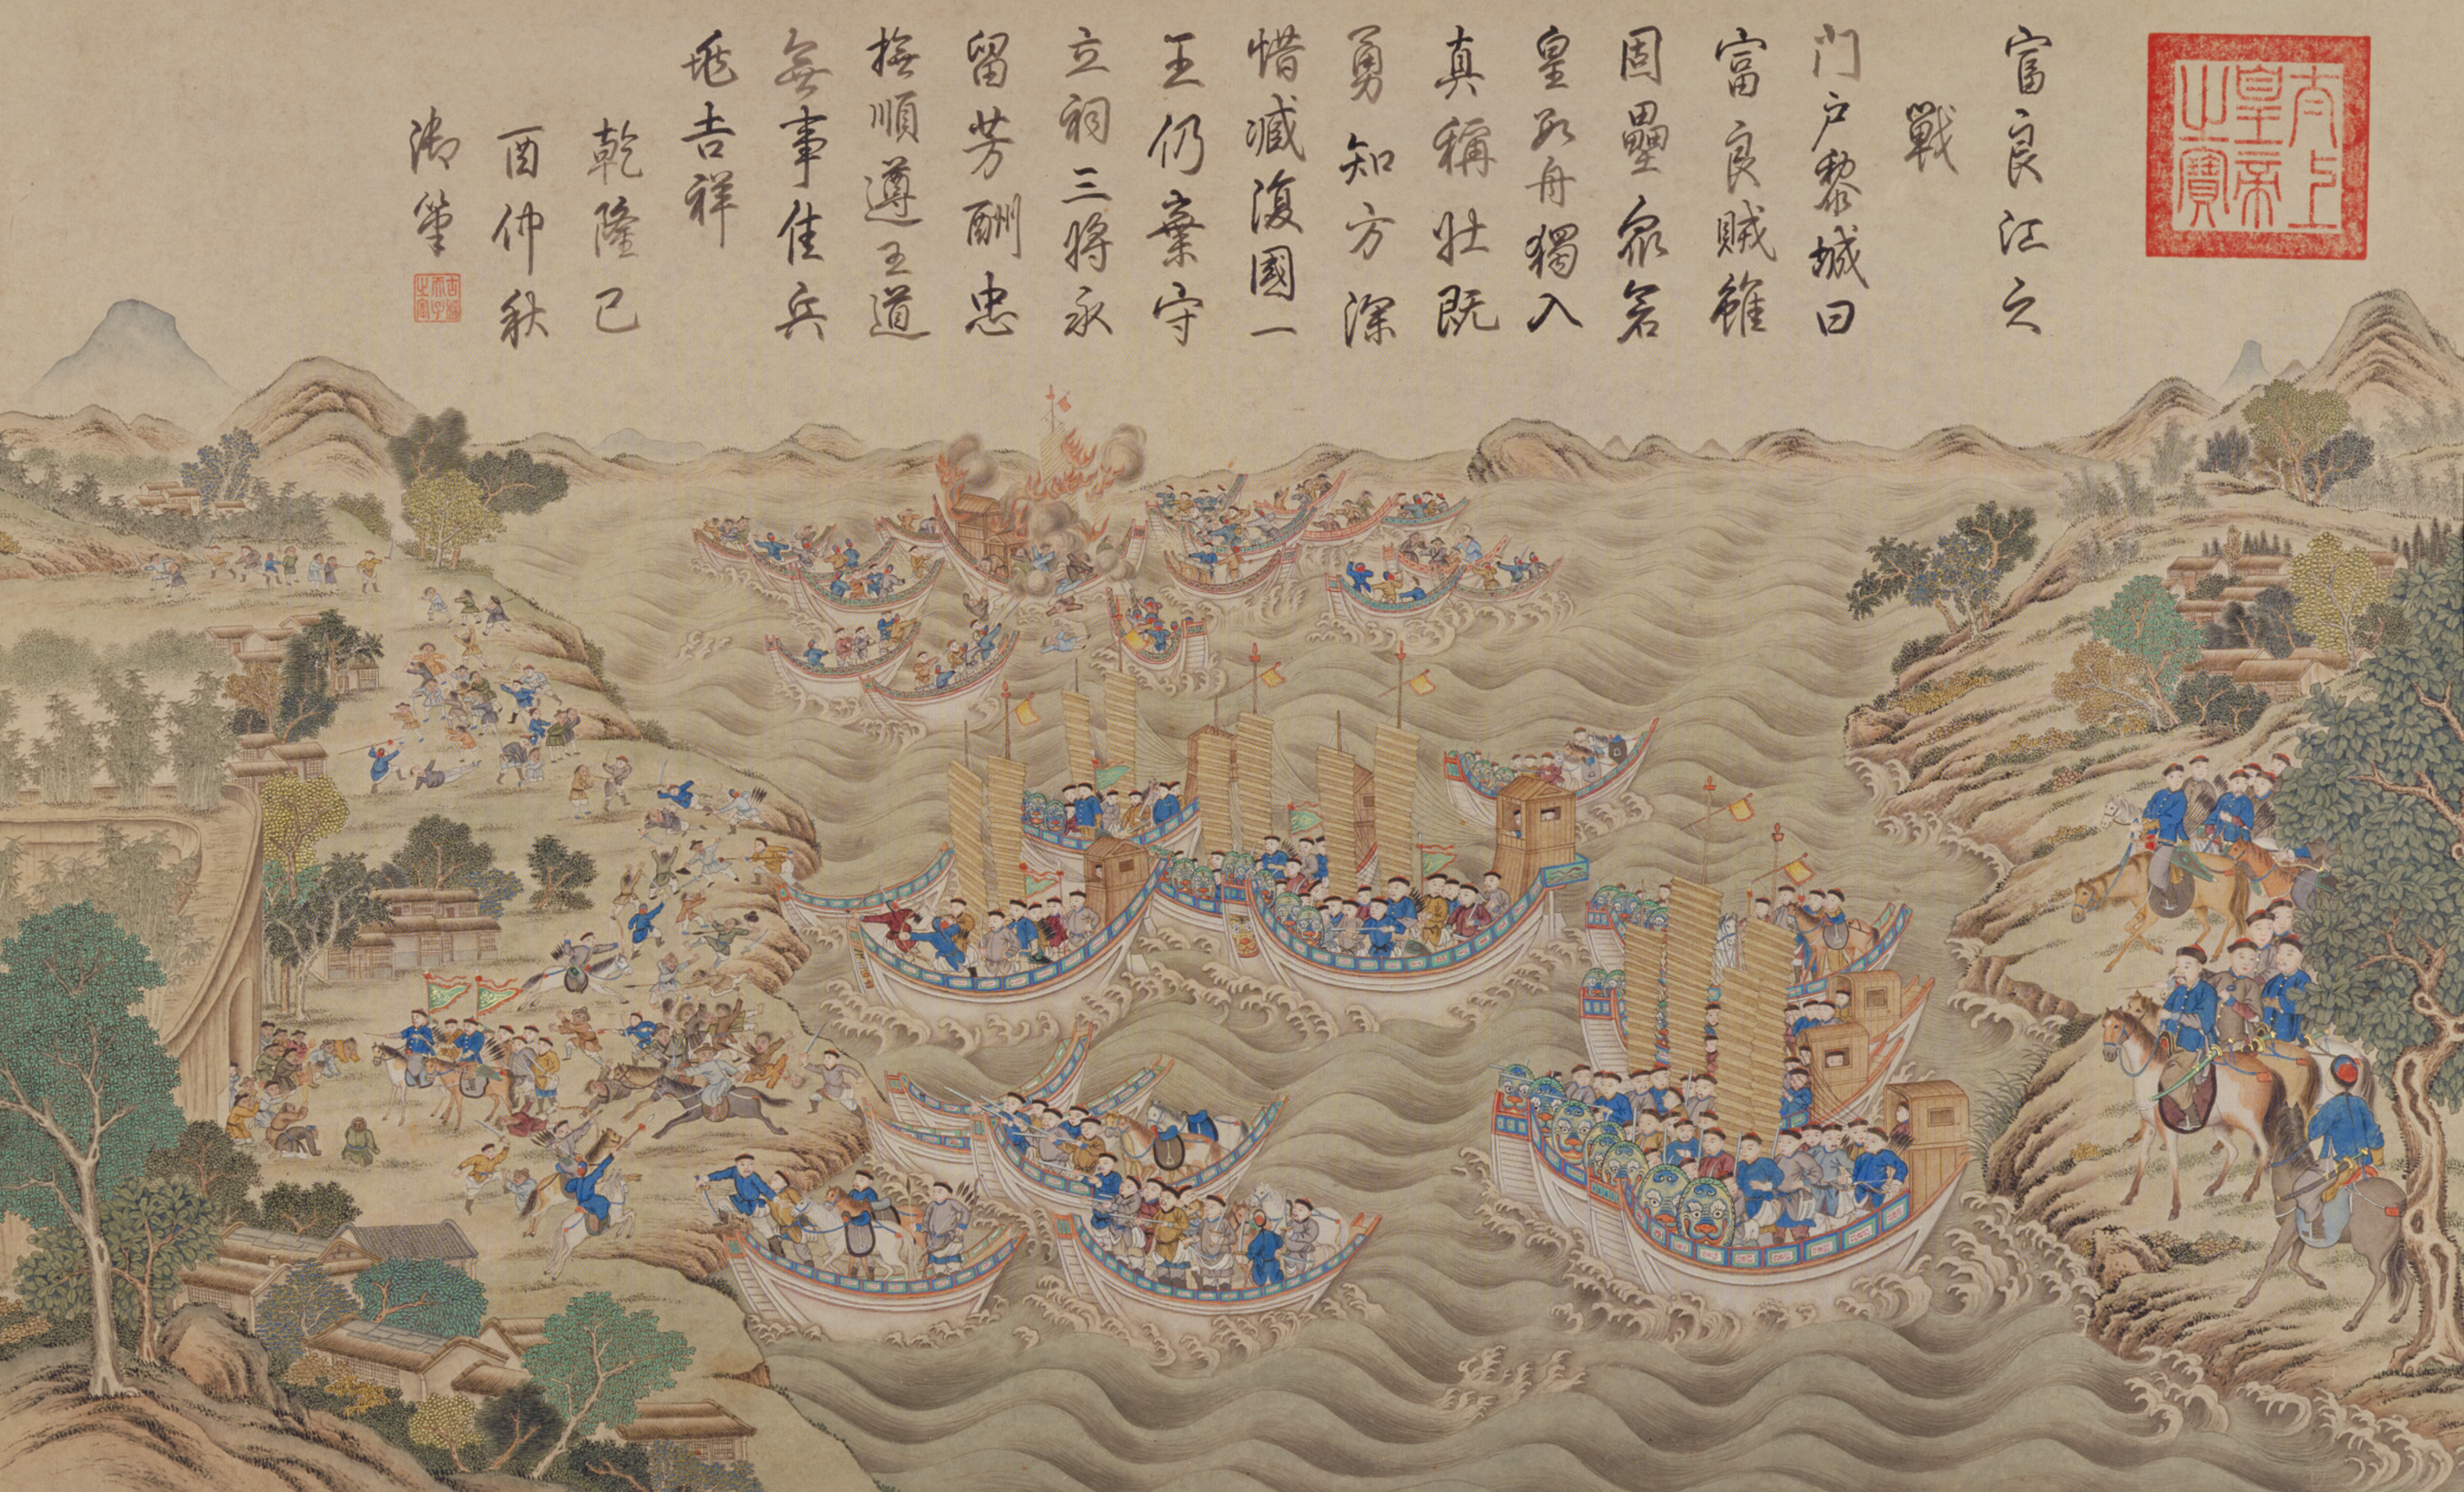 太上
皇帝
之寶
富良江之
戰
门户黎城曰
富良賊雖
固壘衆
皇舟獨入
真稱壯既
勇知方深
惜臧復國一
王仍棄守
立祠三將永
留芳酬忠
撫順遵王道
無事佳兵
吉祥
乾隆己
酉仲秋
御筆
古稀
天子
之寶